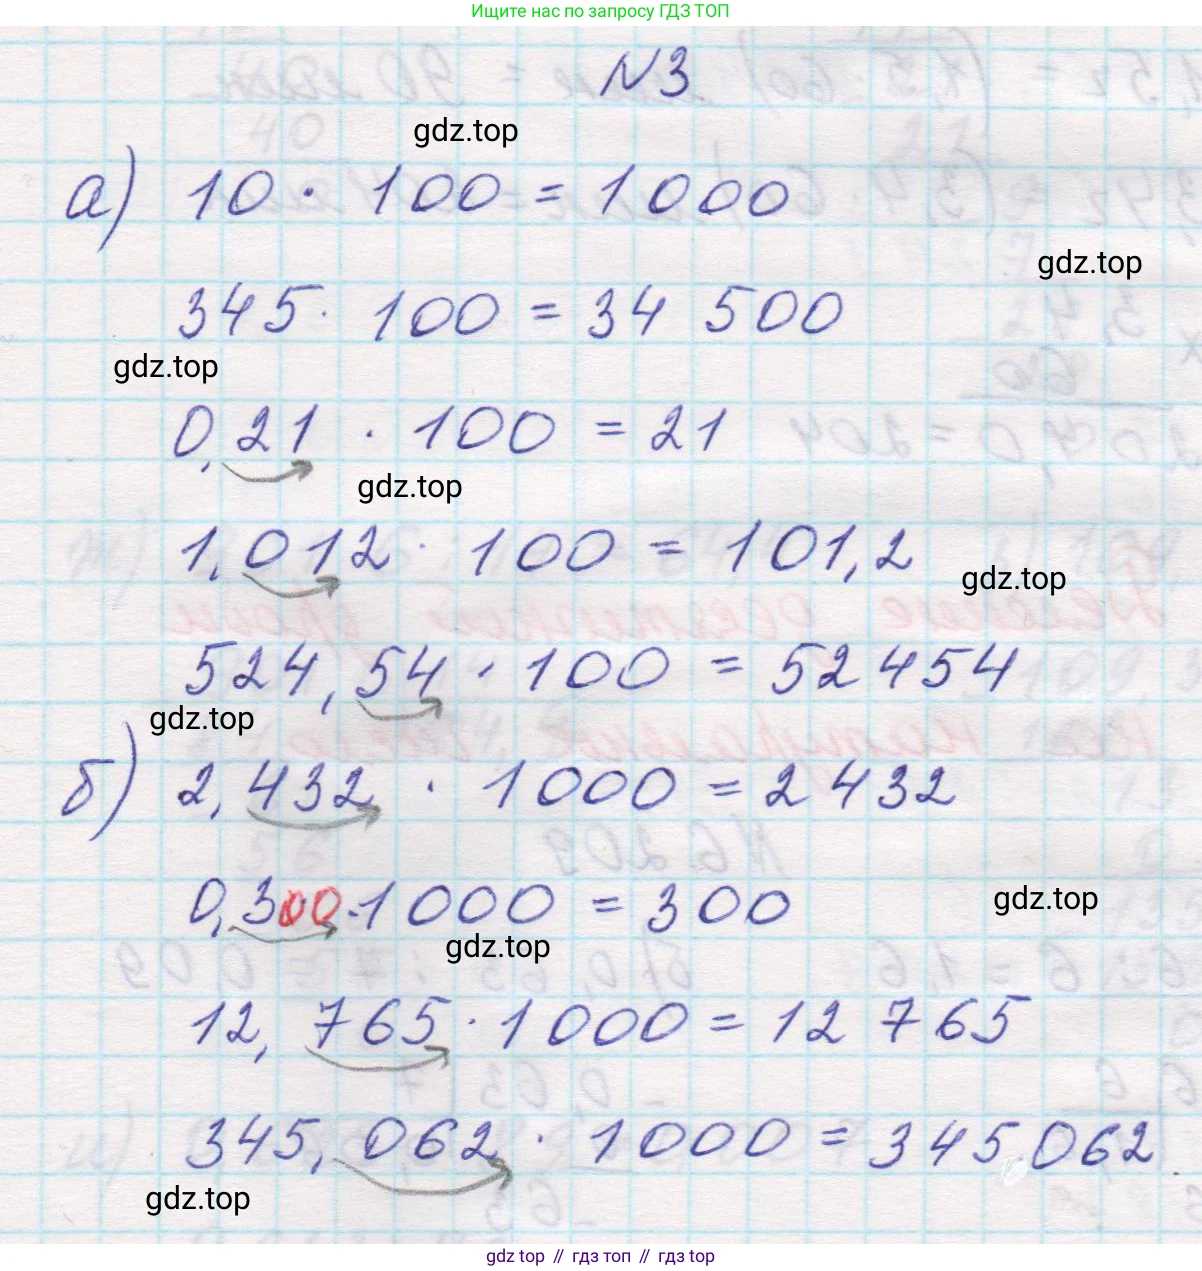 Ищите нас по запросу ГДЗ ТОП
N3
gdz.top
а) 10 · 100 = 1000
gdz.top
345 · 100 = 34 500
gdz.top
0,21 · 100 = 21
gdz.top
1,012 · 100 = 101,2
gdz.top
524,54 · 100 = 52454
gdz.top
б) 2,432 · 1000 = 2432
0,300 · 1000 = 300
gdz.top
gdz.top
12,765 · 1000 = 12 765
345,062 · 1000 = 345 062
gdz.top
gdz top // гдз топ // gdz top